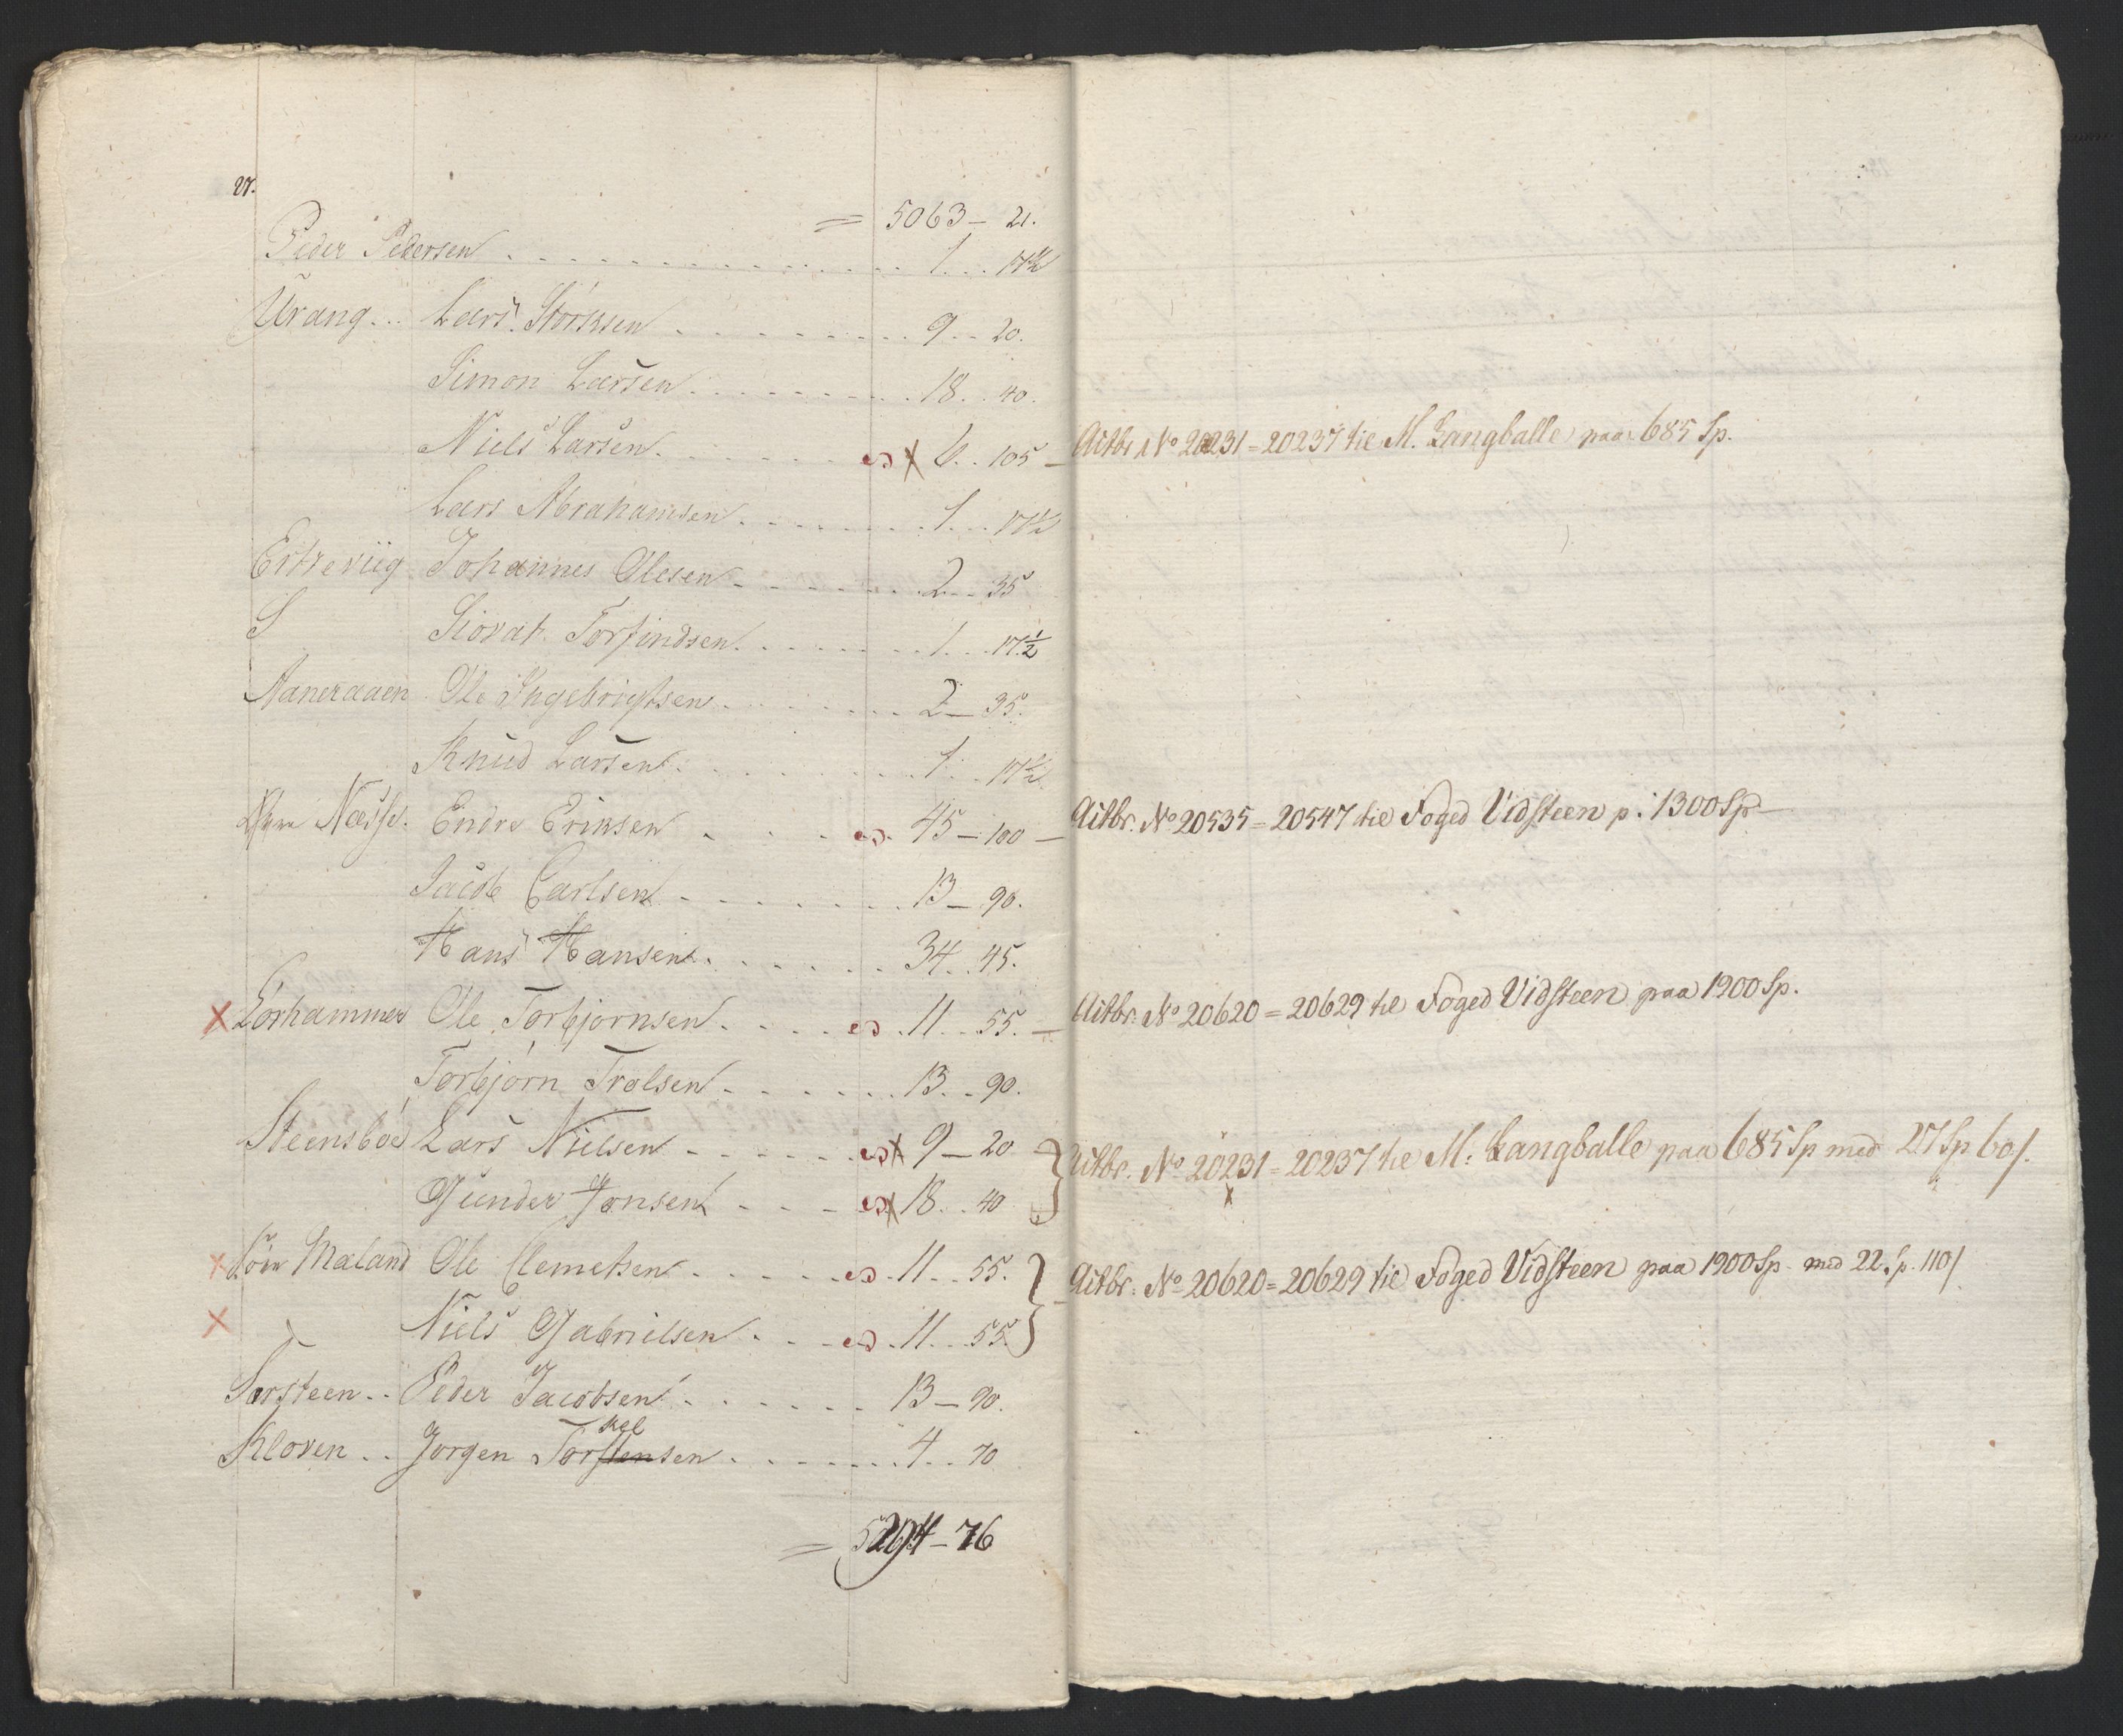 27.
= 5063 – 21.
Peder Pedersen . . . 1 . . . 17½
Urang . . . Lars Störksen . . . 9 . . 20.
Simon Larsen . . . 18 . . 40.
Niels Larsen . . . 6 . . 105 – Aitbr. No 20231 = 20237 til M. Langballe paa 685 Sp.
Lars Abrahamsen . . . 1 . . . 17½
Ertreviig Johannes Olesen . . . 2 . . . 35
S Siovat Torfindsen . . . 1 . . . 17½
Aaneraaen Ole Ingebrigtsen . . . 2 – 35.
Knud Larsen . . . 1 . . 17½
Næsse. Endre Eriksen . . . 45 – 100 – Aitbr. No 20535 = 20547 til Foged Vidsteen p: 1300 Sp –
Jacob Carlsen . . . 13 – 90.
Hans Hansen . . . 34 . . 45.
x Lörhammer Ole Torbjörnsen . . . 11 . . 55. – Aitbr. No 20620 = 20629 til Foged Vidsteen paa 1900 Sp.
Torbjörn Trolsen . . . 13 . . 90.
Steensböe Lars Nielsen . . . x 9 – 20 } Aitbr. No 20231 = 20237 til M: Langballe paa 685 Sp med 27 Sp 60/.
Gunder Jonsen . . . x 18 . . 40
x Maland Ole Clemetsen . . . 11 . . 55. } Aitbr. No 20620 = 20629 til Foged Vidsteen paa 1900 Sp. med 22. Sp. 110/
x Niels Gabrielsen . . . 11 . . 55.
Torsteen . . Peder Jacobsen . . . 13 – 90.
kel
Kloven . . Jorgen Torstensen . . . 4 . . 70
= 5294 – 76